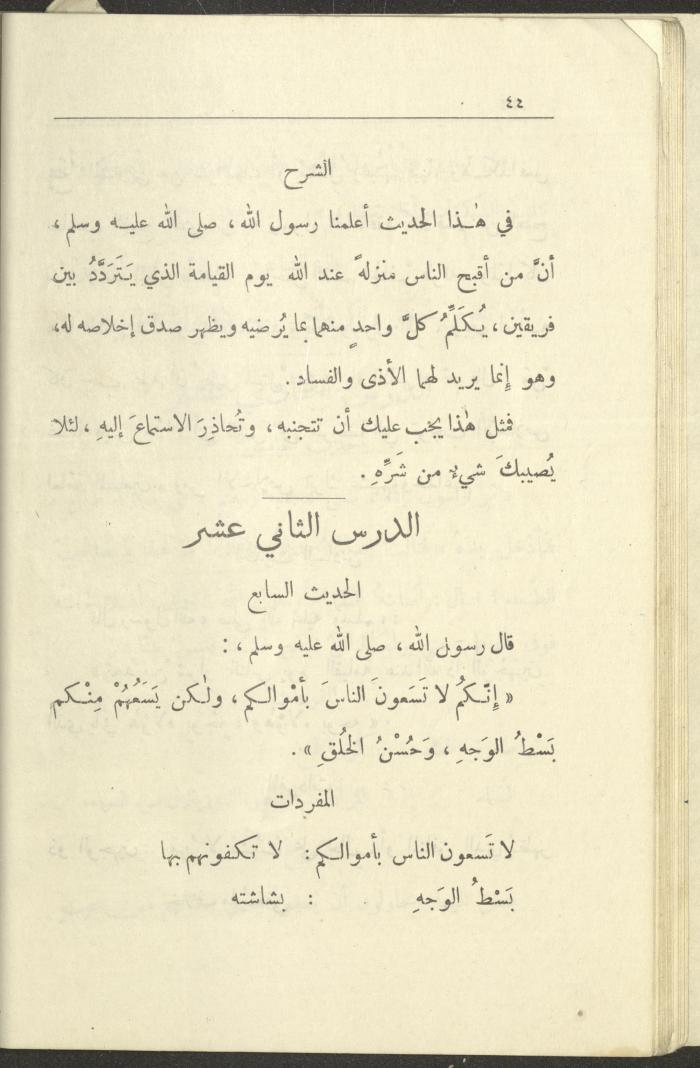 ٤٤
الشرح
في هٰذا الحديث أعلمنا رسول الله، صلى الله عليه وسلم،
أنَّ من أقبح الناس منزلةً عند الله يوم القيامة الذي يَتَرَدَّدُ بين
فريقين، يُكَلِّمُ كلَّ واحدٍ منهما بما يُرضيه ويظهر صدق إخلاصه له،
وهو إِنما يريد لهما الأذى والفساد.
فمثل هٰذا يجب عليك أن تتجنبه، وتُحاذِرَ الاستماعَ إليهِ، لئلا
يُصيبكَ شيءٌ من شَرِّهِ.
الدرس الثاني عشر
الحديث السابع
قال رسول الله، صلى الله عليه وسلم،:
« إِنَّكُمْ لا تَسَعونَ الناسَ بأمْوالكم، ولٰكن يَسَعُهُمْ مِنْكم
بَسْطُ الوَجهِ، وَحُسْنُ الخُلُقِ ».
المفردات
لا تَسعون الناس بأموالكم: لا تكفونهم بها
بَسْطُ الوَجهِ : بشاشته